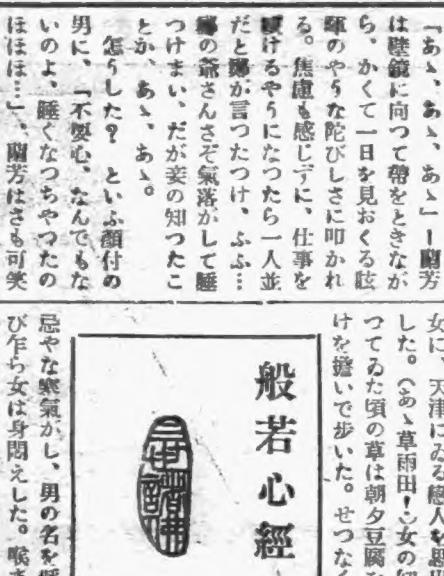 「あゝ、あゝ、あゝ」ー蘭芳
は壁鏡に向つて帶をときなが
ら、かくて一日を見おくる眩
暉のやうな陀びしさに叩かれ
る。焦慮も感じずに、仕事を
續けるやうになつたら一人並
だと鄭が言つたつけ、ふふ…
鄭の爺さんさぞ氣落がして睡
つけまい、だが妾の知つたこ
とか、あゝ、あゝ。
怎うした？　といふ顏付の
男に、「不要心、なんでもな
いのよ、睡くなつちやつたの
ほほほ…」、蘭芳はさも可笑
女に、天津にゐる戀人を思
した。（あゝ草雨田！）女の
つてゐた頃の草は朝夕豆腐
けを擔いで歩いた。せつな
般若心經
忌やな寒氣がし、男の名を
び乍ら女は身悶えした。喉